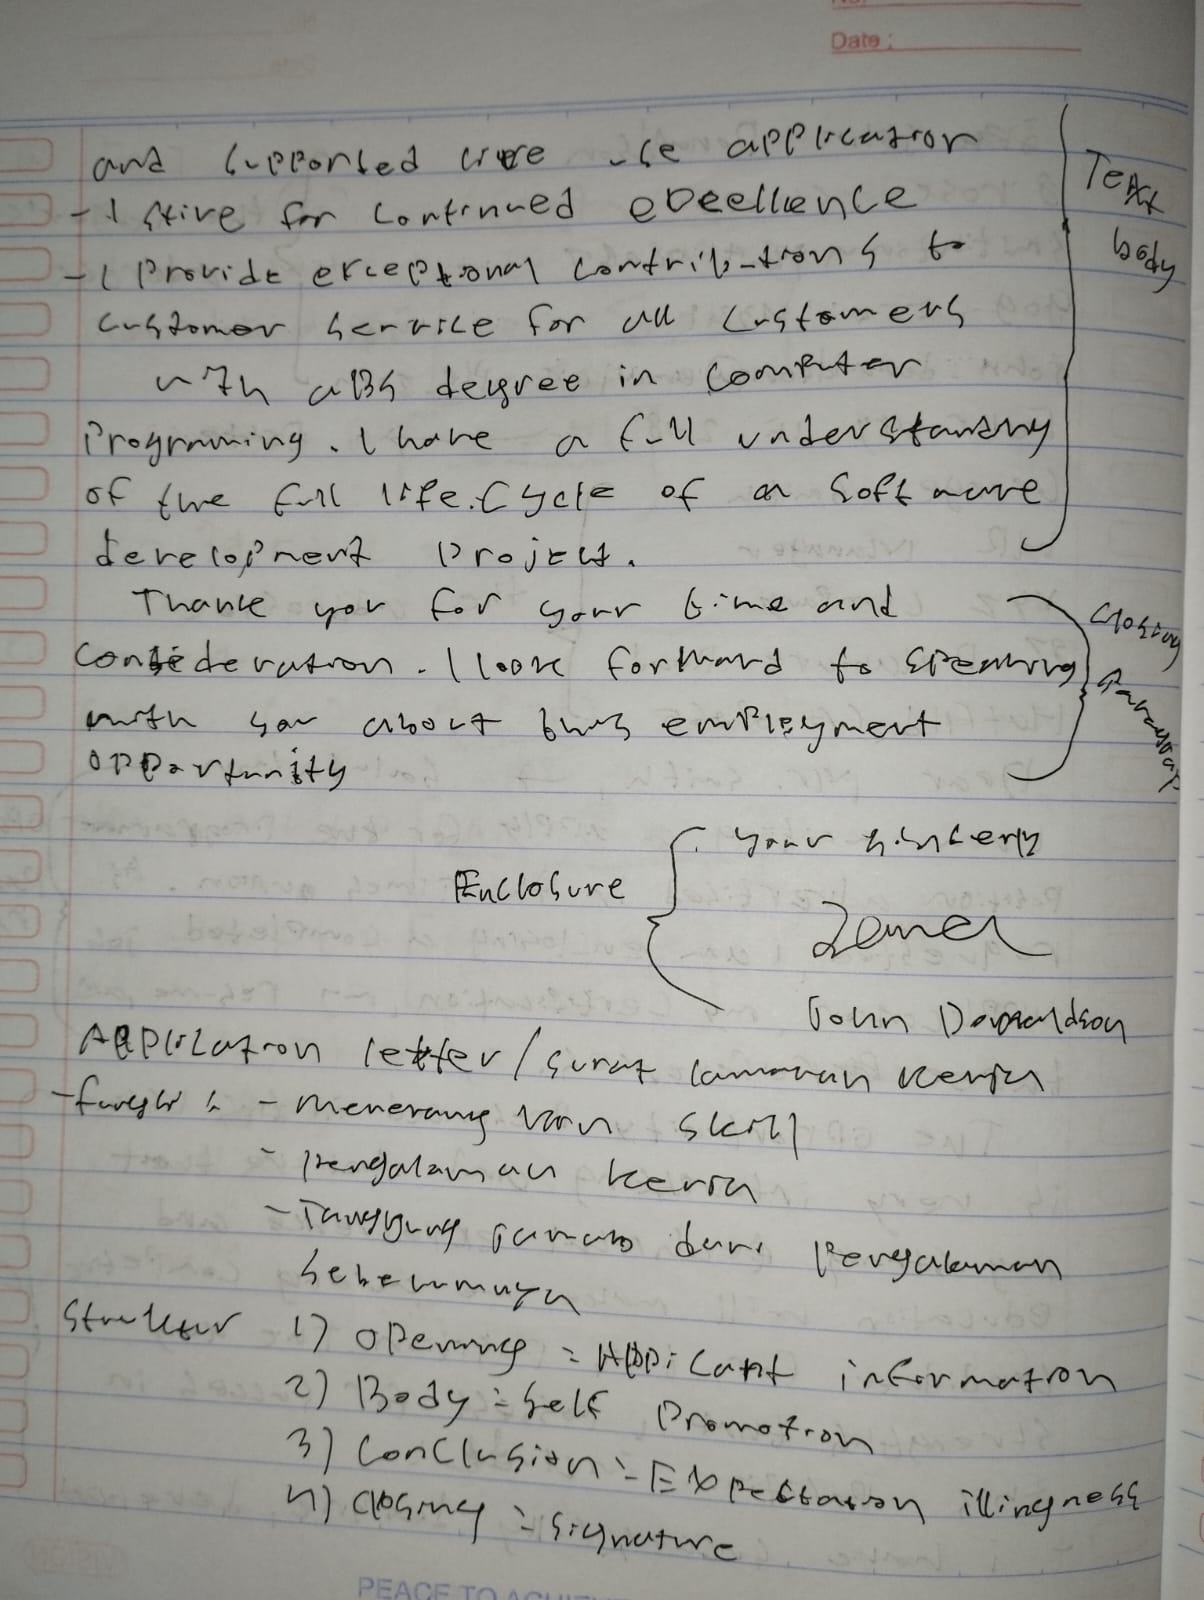 Date :
and supported live use application
- I strive for continued excellence
- I Provide exceptional contributions to
customer service for all customers
with a BS degree in computer
Programing. I have a full understanding
of the full life.cycle of a software
development Project.
Text
body
Thank you for your time and
consideration. I look forward to speaking
with you about this employment
opportunity
Closing
Paragraph
Enclosure
your sincerly
John Donaldson
Application letter / surat lamaran kerja
- fungsi : - menerangkan skill
- Pengalaman kerja
- Tanggung jawab dari Pengalaman
sebelumnya
Struktur 1) Opening : Applicant information
2) Body : Self Promotion
3) Conclusion : Expectation illingness
4) Closing : Signature
PEACE TO